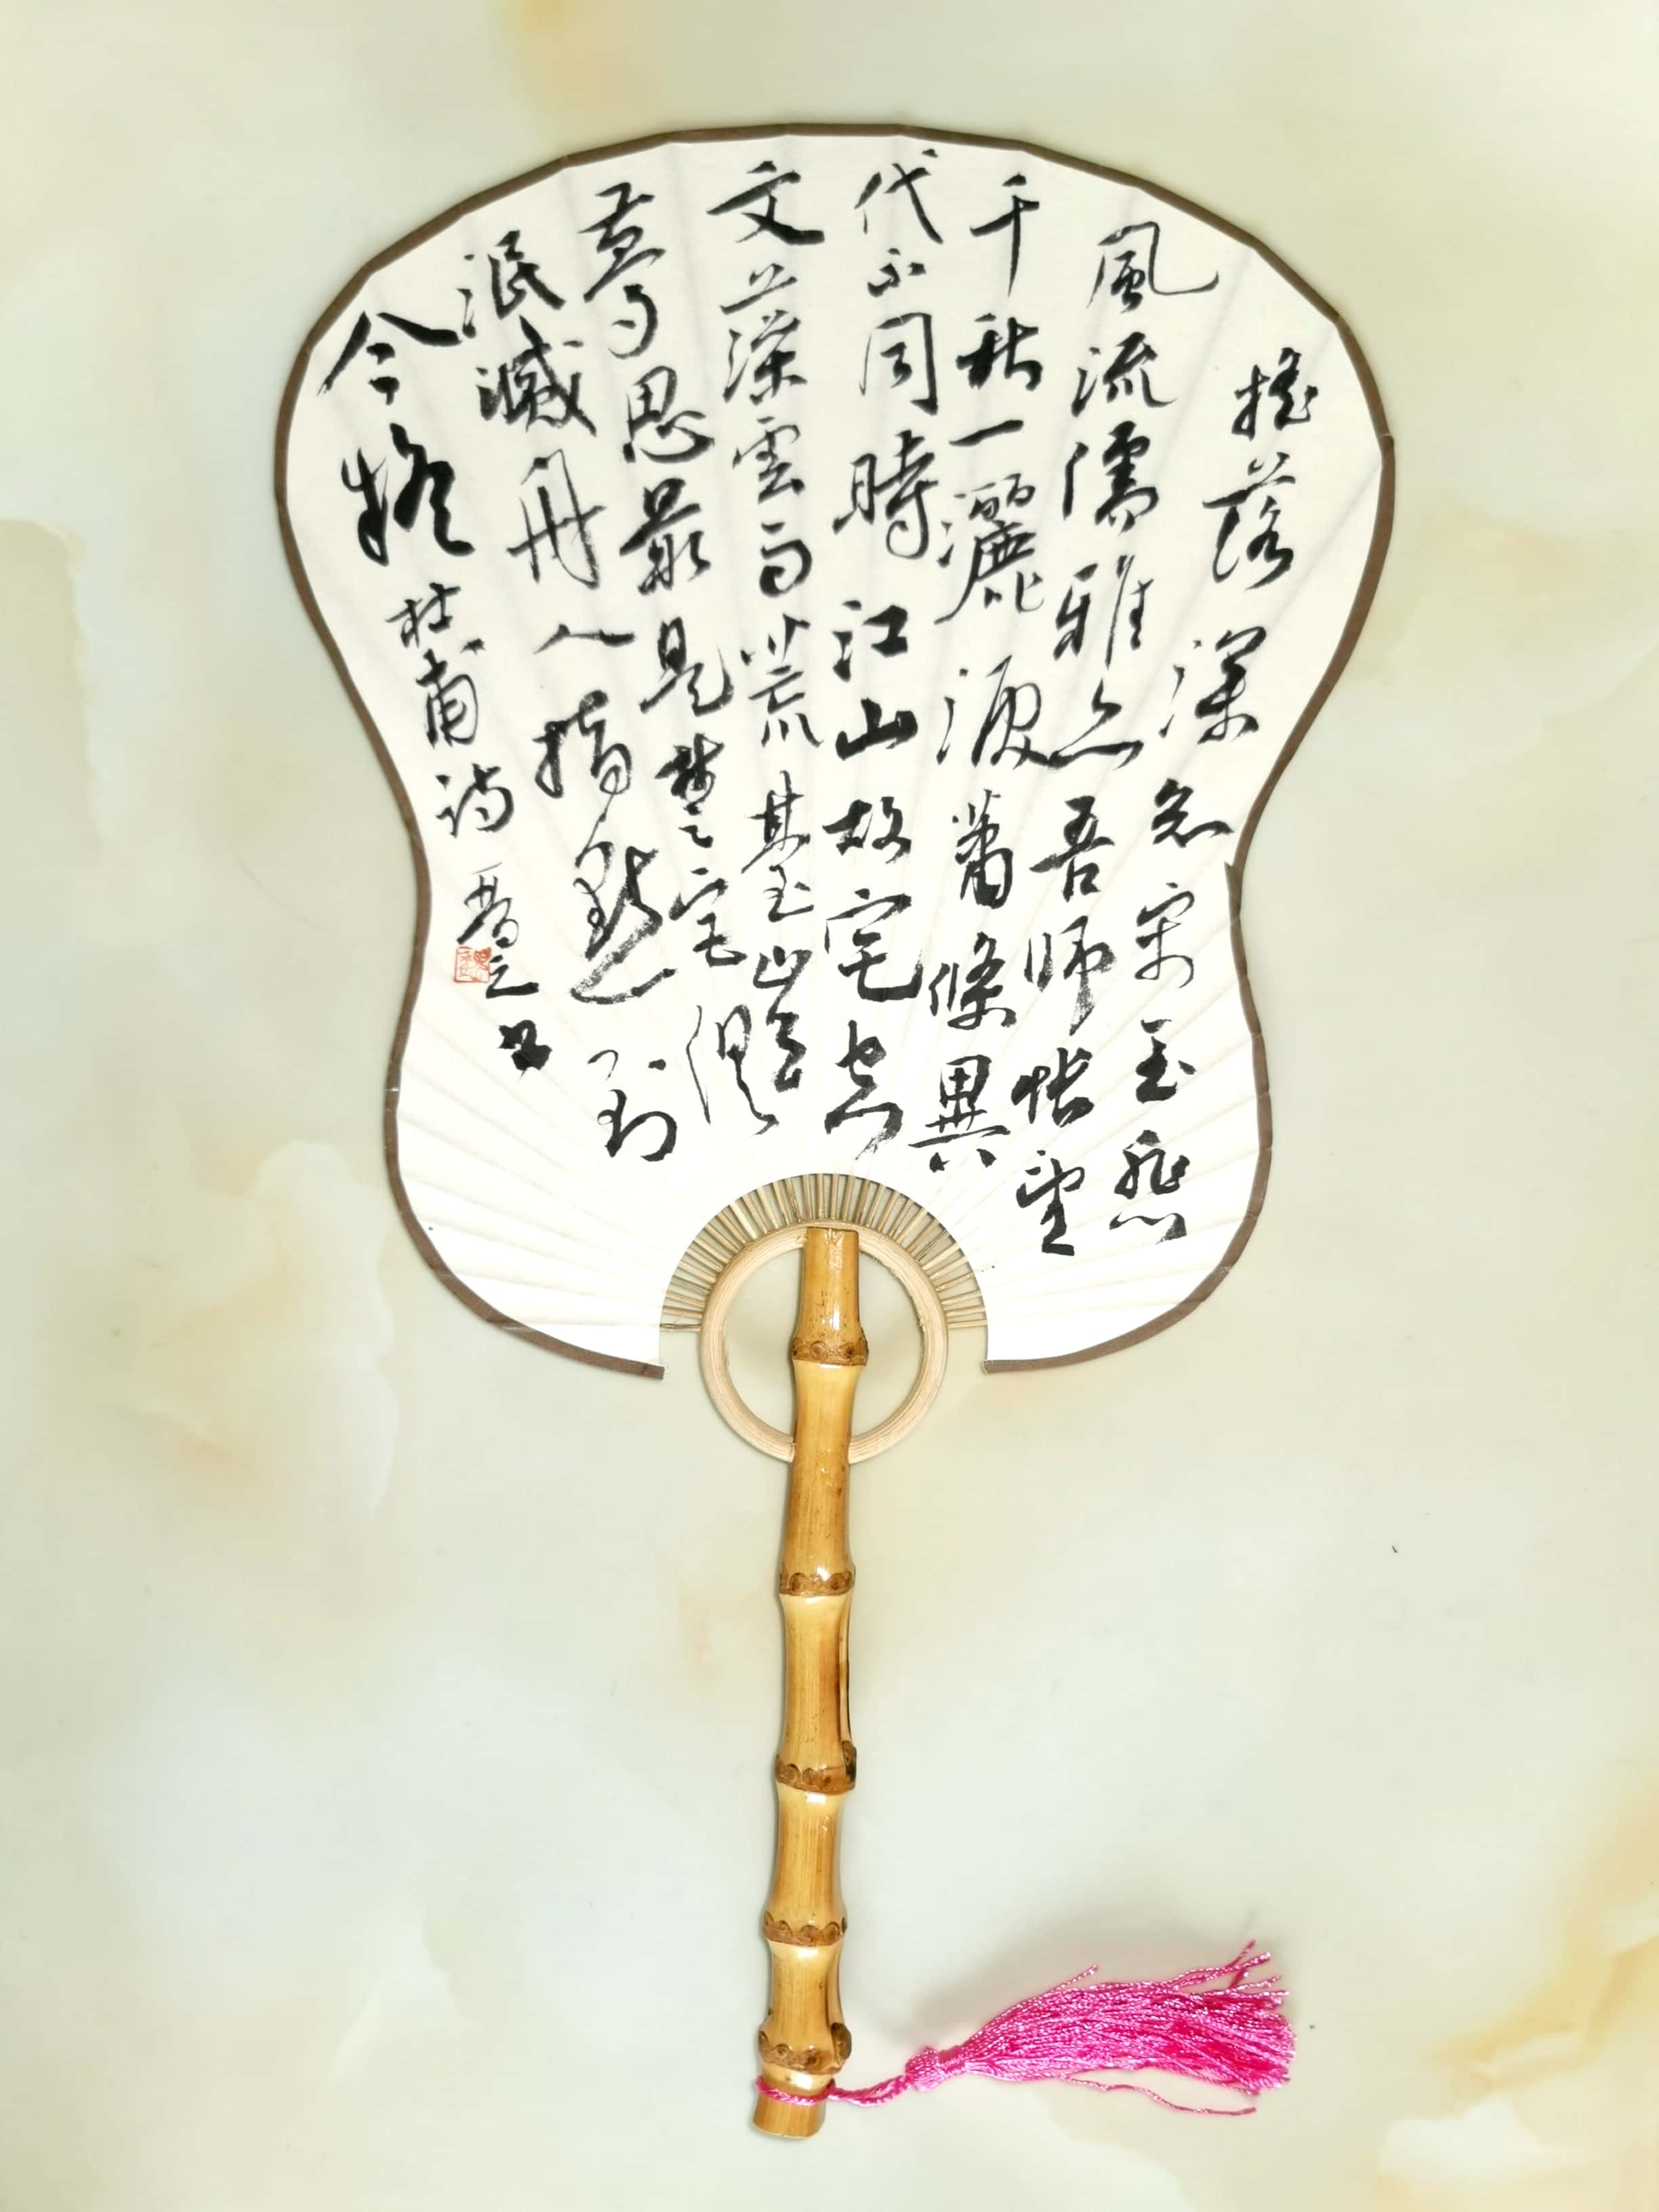 搖落深知宋玉悲
風流儒雅亦吾師悵望
千秋一灑淚蕭條異
代不同時江山故宅空
文藻雲雨荒臺豈
夢思最是楚宮俱
泯滅舟人指點到
今疑
杜甫詩 晉之书